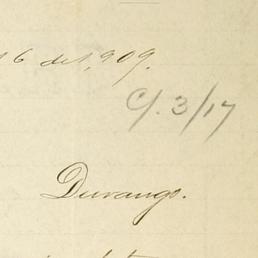 6 de 1,909.
C/. 3/17
Durango.